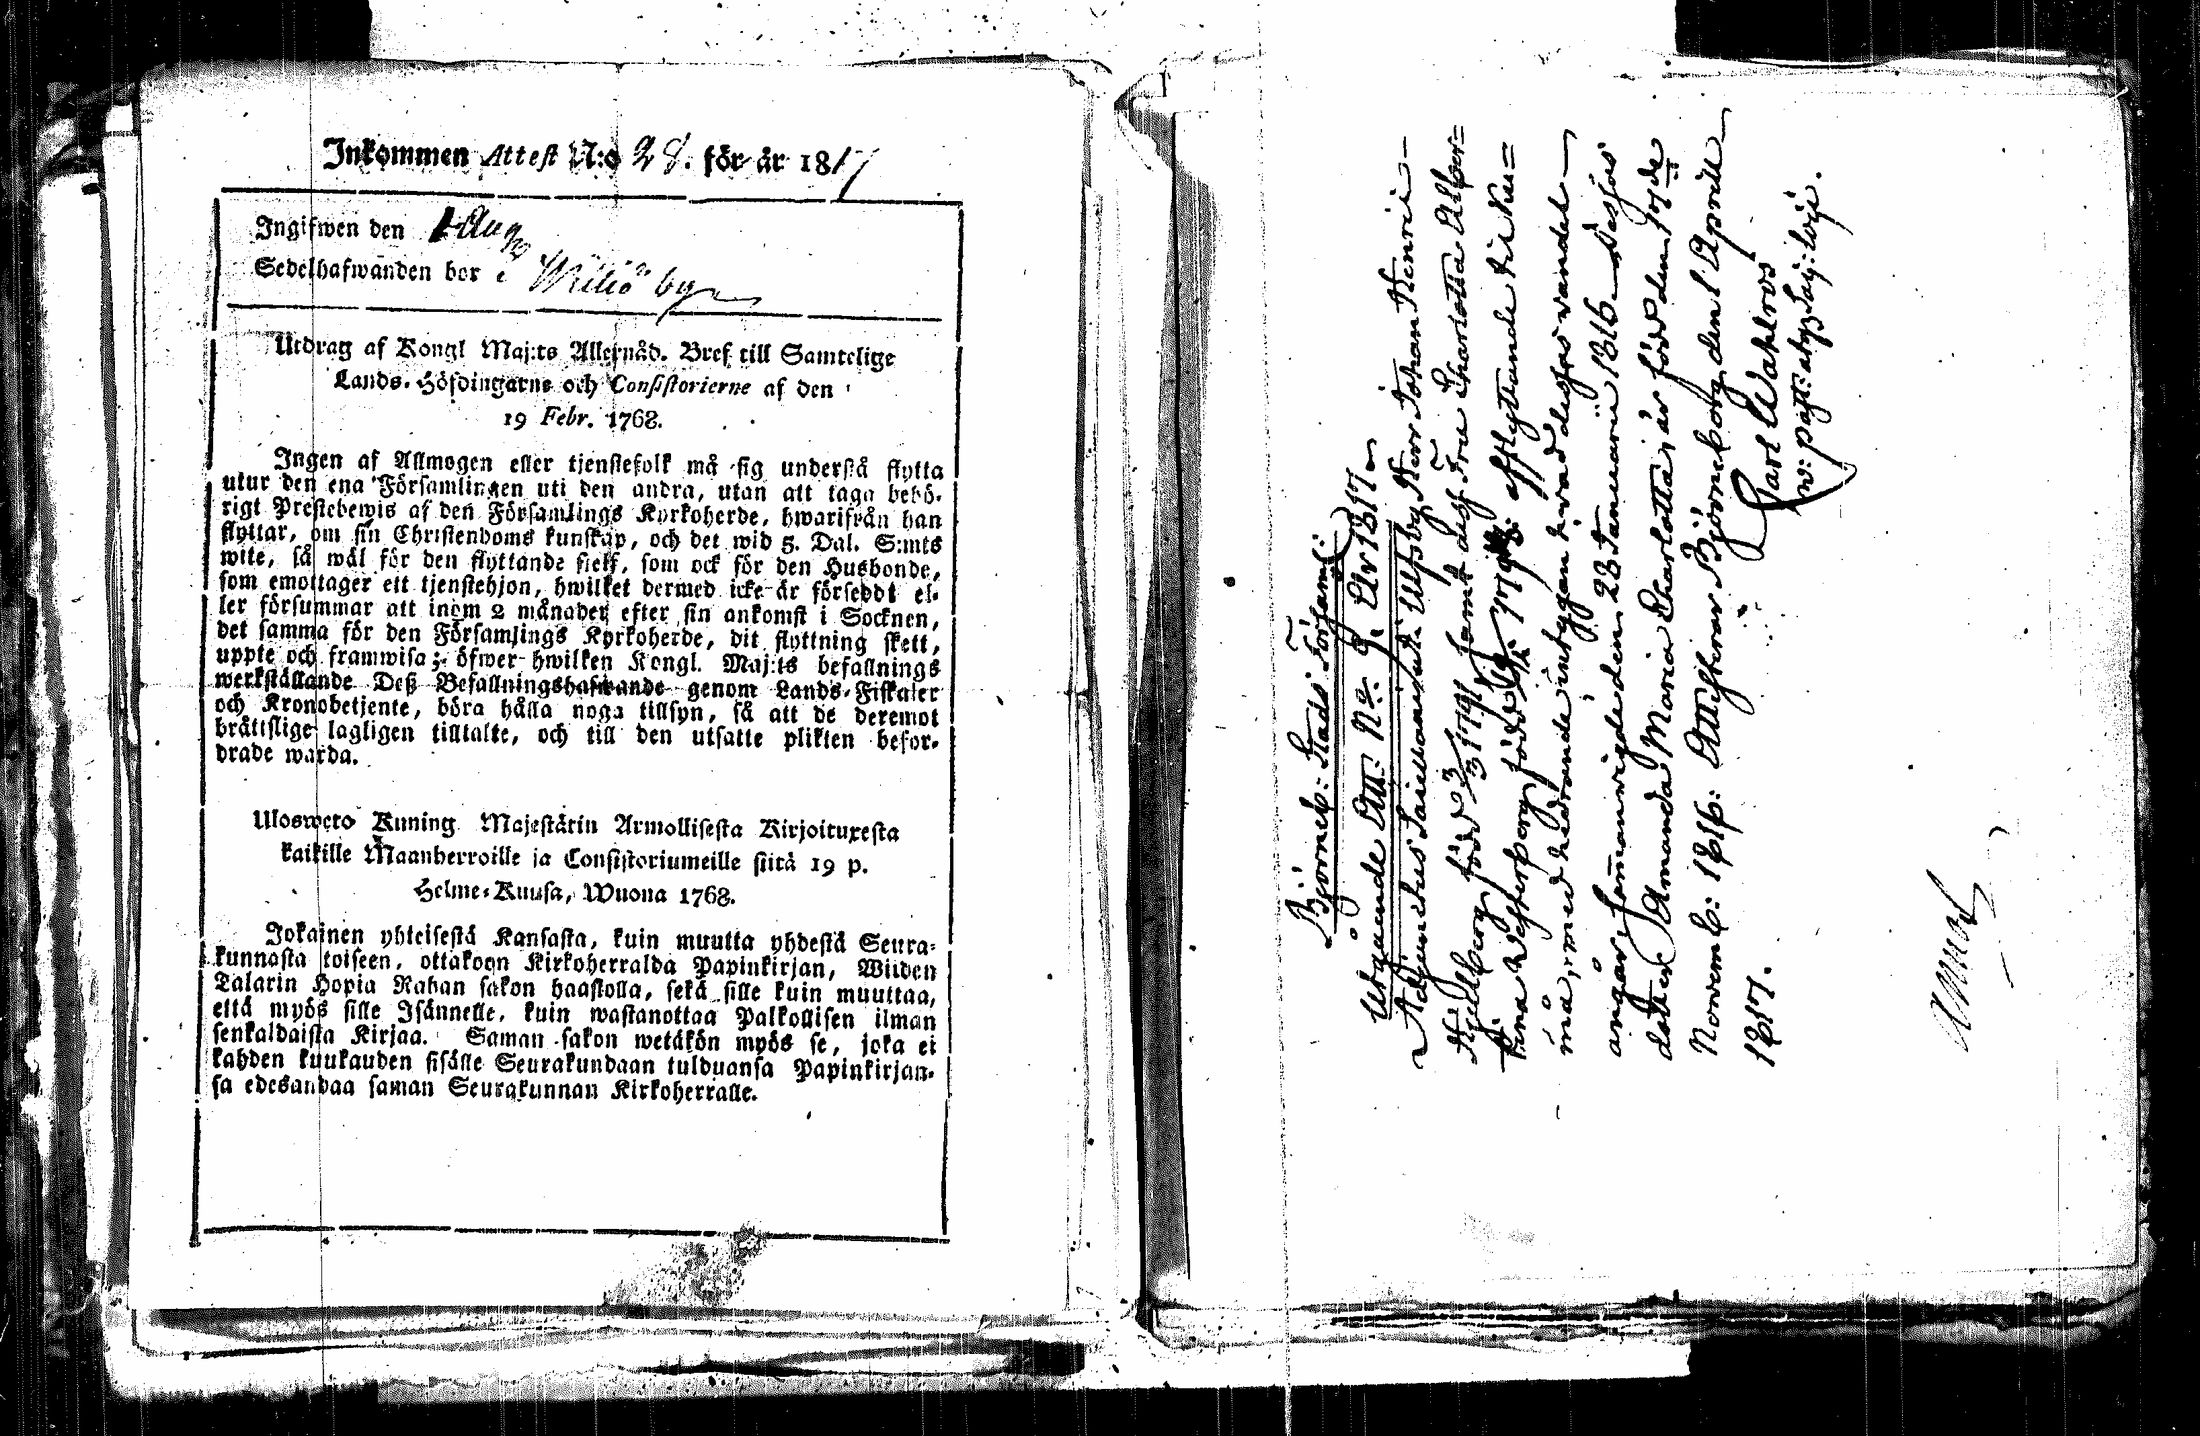 Inkommen Attest N:o 28. för år 1817
Ingifwen den 1 Aug
Sedelhafwanden bor i by
Utdrag af Kongl Maj:ts Allernåd. Bref till Samtelige
Lands-Höfdingarne och Consistorierne af den
19 Febr. 1768.
Ingen af Allmogen eller tjenstefolk må sig understå flytta
utur den ena Församlingen uti den andra, utan att taga behö-
rigt Prestebewis af den Församlings Kyrkoherde, hwarifrån han
flyttar, om sin Christendoms kunskap, och det wid 5. Dal. S:mts
wite, så wäl för den flyttande sielf, som ock för den Husbonde,
som emottager ett tjenstehjon, hwilket dermed icke är förseddt el-
ler försummar att inom 2 månader efter sin ankomst i Socknen,
det samma för den Församlings Kyrkoherde, dit flyttning skett,
uppte och framwisa; öfwer hwilken Kongl. Maj:ts befallnings
werkställande Deß Befallningshafwande genom Lands-Fiskaler
och Kronobetjente, böra hålla noga tillsyn, så att de deremot
bråttslige lagligen tilltalte, och till den utsatte plikten befor-
drade warda.
Ulosweto Kuning Majestätin Armollisesta Kirjoituxesta
kaikille Maanherroille ja Consistoriumeille siitä 19 p.
Helme-Kuusa, Wuona 1768.
Jokainen yhteisestä Kansasta, kuin muutta yhdestä Seura-
kunnasta toiseen, ottakoon Kirkoherralda Papinkirjan, Wiiden
Talarin Hopia Rahan sakon haastolla, sekä sille kuin muuttaa,
että myös sille Isännelle, kuin wastanottaa Palkollisen ilman
senkaldaista Kirjaa. Saman sakon wetäkön myös se, joka ei
kahden kuukauden sisälle Seurakundaan tulduansa Papinkirjan-
sa edesandaa saman Seurakunnan Kirkoherralle.
Björneb: Stads Församl:
Utgående Att: No. 9. År 1817
Adjunctus Ulfsby Herr Johan Henric
Hellberg född 3/3 1791 samt dess Fru Charlotta Alber-
tina Westerberg född afflyttande til Ku-
må, med hedrande intygen hwad desses wandel
angår, sammanwigde den 23 Januarii 1816. Desses
dotter Amanda Maria Charlotta, är född den
Novemb: 1816. Attesterar Björneborg den 1 Aprill
1817.
Carl Wahlroos